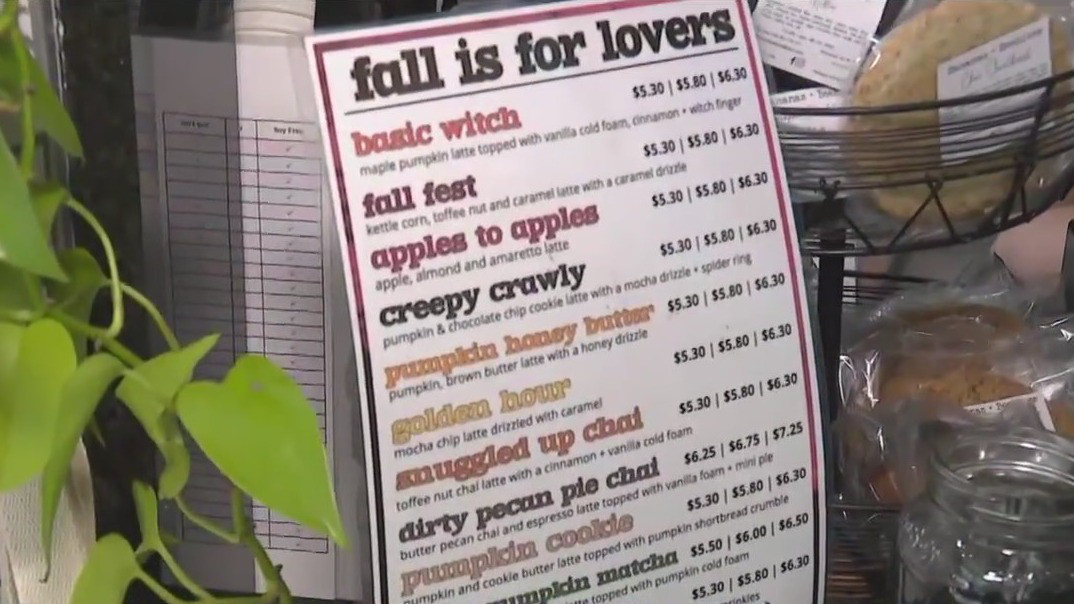 fall is for lovers
basic witch $5.30 | $5.80 | $6.30
maple pumpkin latte topped with vanilla cold foam, cinnamon + witch finger
fall fest $5.30 | $5.80 | $6.30
kettle corn, toffee nut and caramel latte with a caramel drizzle
apples to apples $5.30 | $5.80 | $6.30
apple, almond and amaretto latte
creepy crawly $5.30 | $5.80 | $6.30
pumpkin & chocolate chip cookie latte with a mocha drizzle + spider ring
pumpkin honey butter $5.30 | $5.80 | $6.30
pumpkin, brown butter latte with a honey drizzle
golden hour $5.30 | $5.80 | $6.30
mocha chip latte drizzled with caramel
snuggled up chai $5.30 | $5.80 | $6.30
toffee nut chai latte with a cinnamon + vanilla cold foam
dirty pecan pie chai $6.25 | $6.75 | $7.25
butter pecan chai and espresso latte topped with vanilla foam + mini pie
pumpkin cookie $5.30 | $5.80 | $6.30
pumpkin and cookie butter latte topped with pumpkin shortbread crumble
pumpkin matcha $5.50 | $6.00 | $6.50
topped with pumpkin cold foam
$5.30 | $5.80 | $6.30